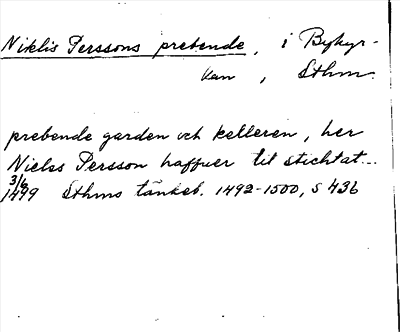 Niklis Perssons prebende, i Bykyr-
kan, Sthm.
prebende garden och kelleren, her
Nielss Persson haffuer til stichtat...
3/6
1499 Sthms tänkeb. 1492-1500, s 436